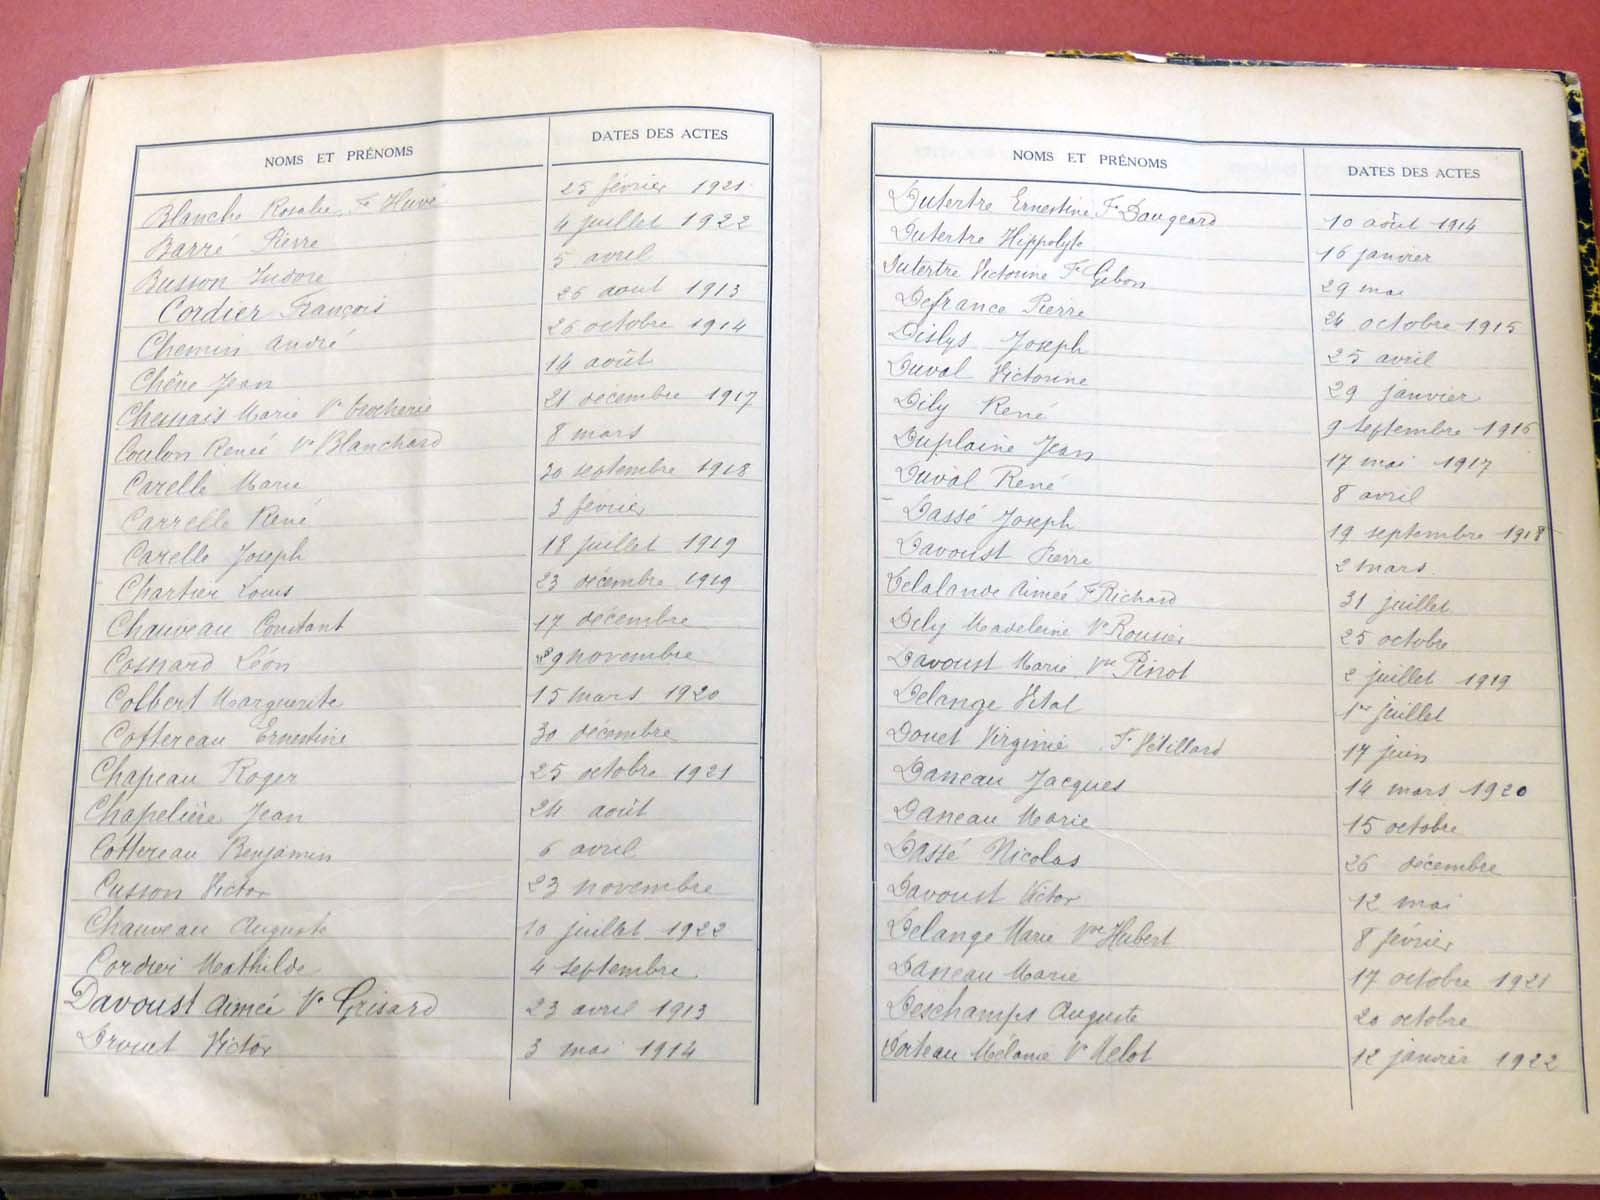 NOMS ET PRÉNOMS DATES DES ACTES
Blanche Rosalie F. Huvé 25 février 1921
Barré Pierre 4 juillet 1922
Busson Isidore 5 avril
Cordier François 26 août 1913
Chemin André 26 octobre 1914
Chêne Jean 14 août
Chesnais Marie Ve 21 décembre 1917
Coulon Renée Ve Blanchard 8 mars
Carelle Marie 30 septembre 1918
Carrelle René 3 février
Carelle Joseph 18 juillet 1919
Chartier Louis 23 décembre 1919
Chauveau Constant 17 décembre
Cosnard Léon 29 novembre
Colbert Marguerite 15 mars 1920
Cottereau Ernestine 30 décembre
Chapeau Roger 25 octobre 1921
Chapelière Jean 24 août
Cottereau Benjamin 6 avril
Cusson Victor 23 novembre
Chauveau Auguste 10 juillet 1922
Cordier Mathilde 4 septembre
Davoust Aimée Ve Grisard 23 avril 1913
Drouet Victor 3 mai 1914
NOMS ET PRÉNOMS DATES DES ACTES
Dutertre Ernestine F. Daugeard 10 août 1914
Dutertre Hippolyte 16 janvier
Dutertre Victorine F. Gibon 29 mai
Defrance Pierre 24 octobre 1915
Dislys Joseph 25 avril
Duval Victorine 29 janvier
Dily René 9 septembre 1916
Duplaine Jean 17 mai 1917
Duval René 8 avril
Dassé Joseph 19 septembre 1918
Davoust Pierre 2 mars
Delalande Aimée F. Richard 31 juillet
Dily Madeleine Ve Rousier 25 octobre
Davoust Marie Vve Pinot 2 juillet 1919
Delange Vital 1er juillet
Douet Virginie F. Vétillard 17 juin
Daneau Jacques 14 mars 1920
Daneau Marie 15 octobre
Dassé Nicolas 26 décembre
Davoust Victor 12 mai
Delange Marie Vve Hubert 8 février
Daneau Marie 17 octobre 1921
Deschamps Auguste 20 octobre
Dorteau Mélanie Ve Melot 12 janvier 1922